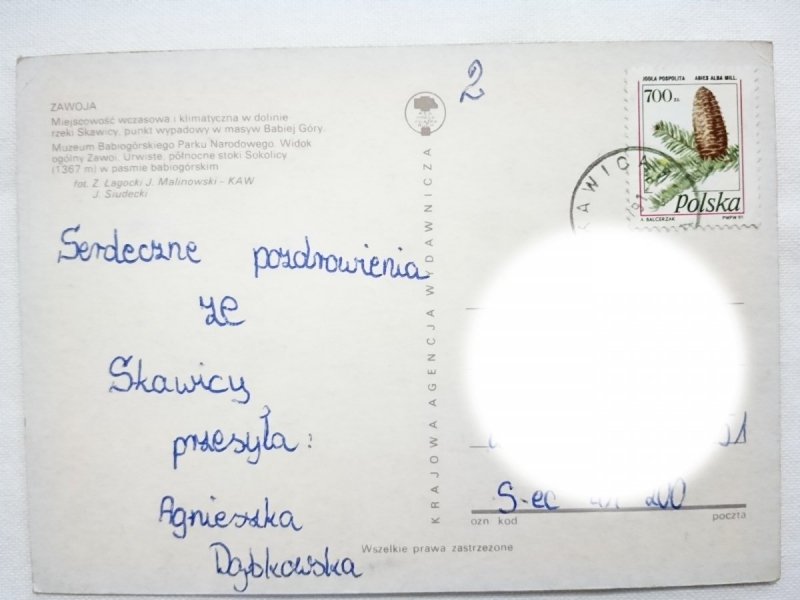 ZAWOJA
Miejscowość wczasowa i klimatyczna w dolinie
rzeki Skawicy, punkt wypadowy w masyw Babiej Góry.
Muzeum Babiogórskiego Parku Narodowego. Widok
ogólny Zawoi. Urwiste, północne stoki Sokolicy
(1367 m) w paśmie babiogórskim
fot. Z. Łagocki J. Malinowski - KAW
J. Siudecki
2
JODŁA POSPOLITA ABIES ALBA MILL.
700 ZŁ
Polska
A. BALCERZAK PWPW 91
KAWICA
Serdeczne pozdrowienia
ze
Skawicy
przesyła:
Agnieszka
Dąbkowska
KRAJOWA AGENCJA WYDAWNICZA
51
S-ec 41 200
ozn kod poczta
Wszelkie prawa zastrzeżone